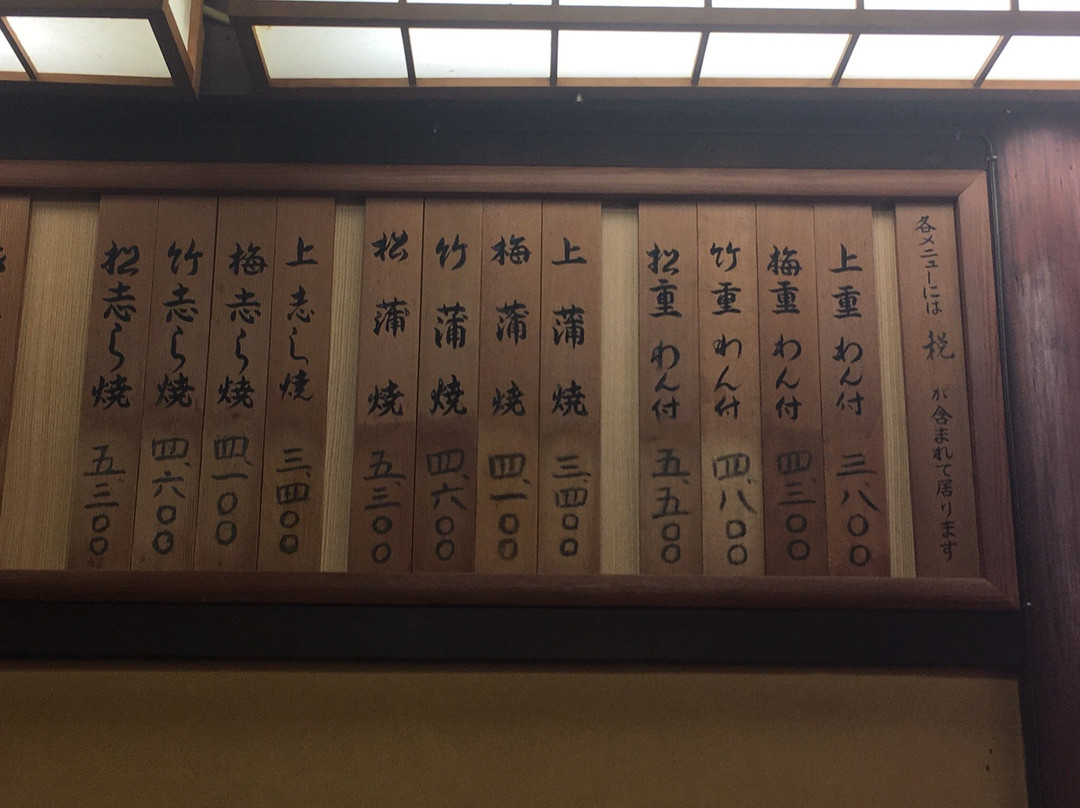 各メニューには 税 が含まれて居ります
上重わん付 三、八〇〇
梅重わん付 四、三〇〇
竹重わん付 四、八〇〇
松重わん付 五、五〇〇
上蒲焼 三、四〇〇
梅蒲焼 四、一〇〇
竹蒲焼 四、六〇〇
松蒲焼 五、三〇〇
上志ら焼 三、四〇〇
梅志ら焼 四、一〇〇
竹志ら焼 四、六〇〇
松志ら焼 五、三〇〇